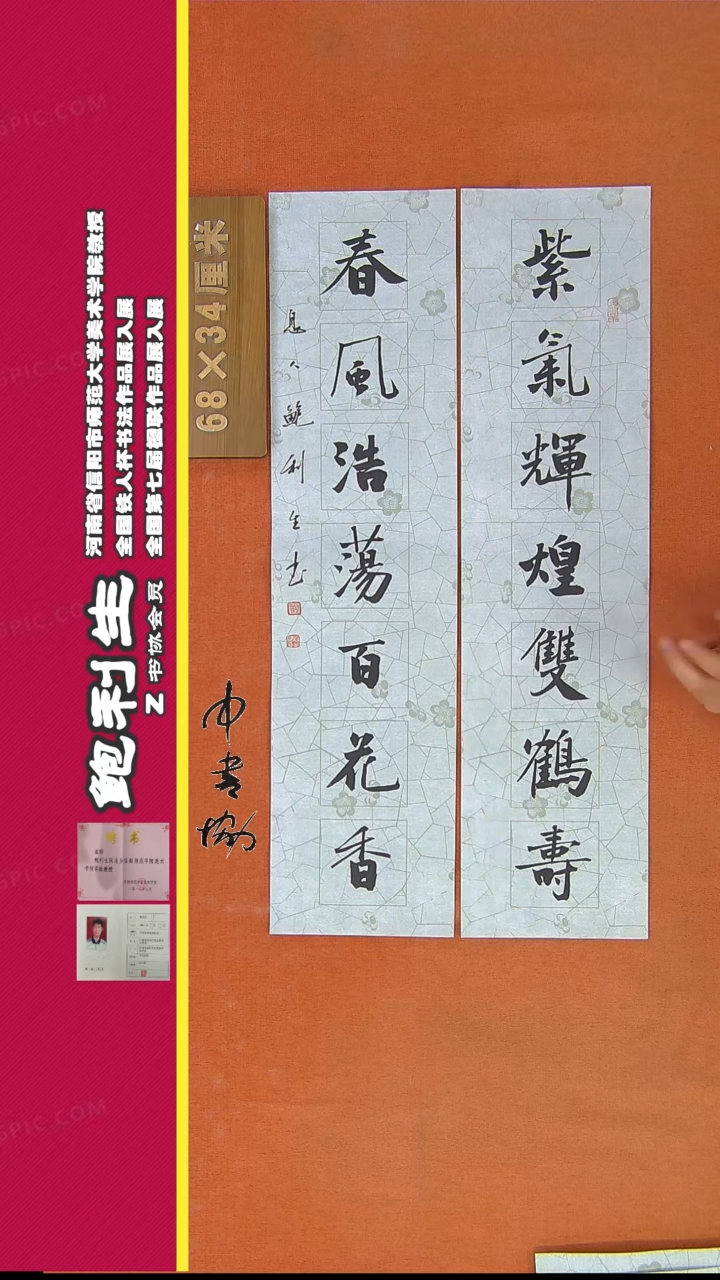 紫氣輝煌雙鶴壽
春風浩蕩百花香
息人鮑利生书
68×34厘米
中书协
河南省信阳市师范大学美术学院教授
全国铁人杯书法作品展入展
全国第七届楹联作品展入展
鲍利生
Z 书协会员
聘书